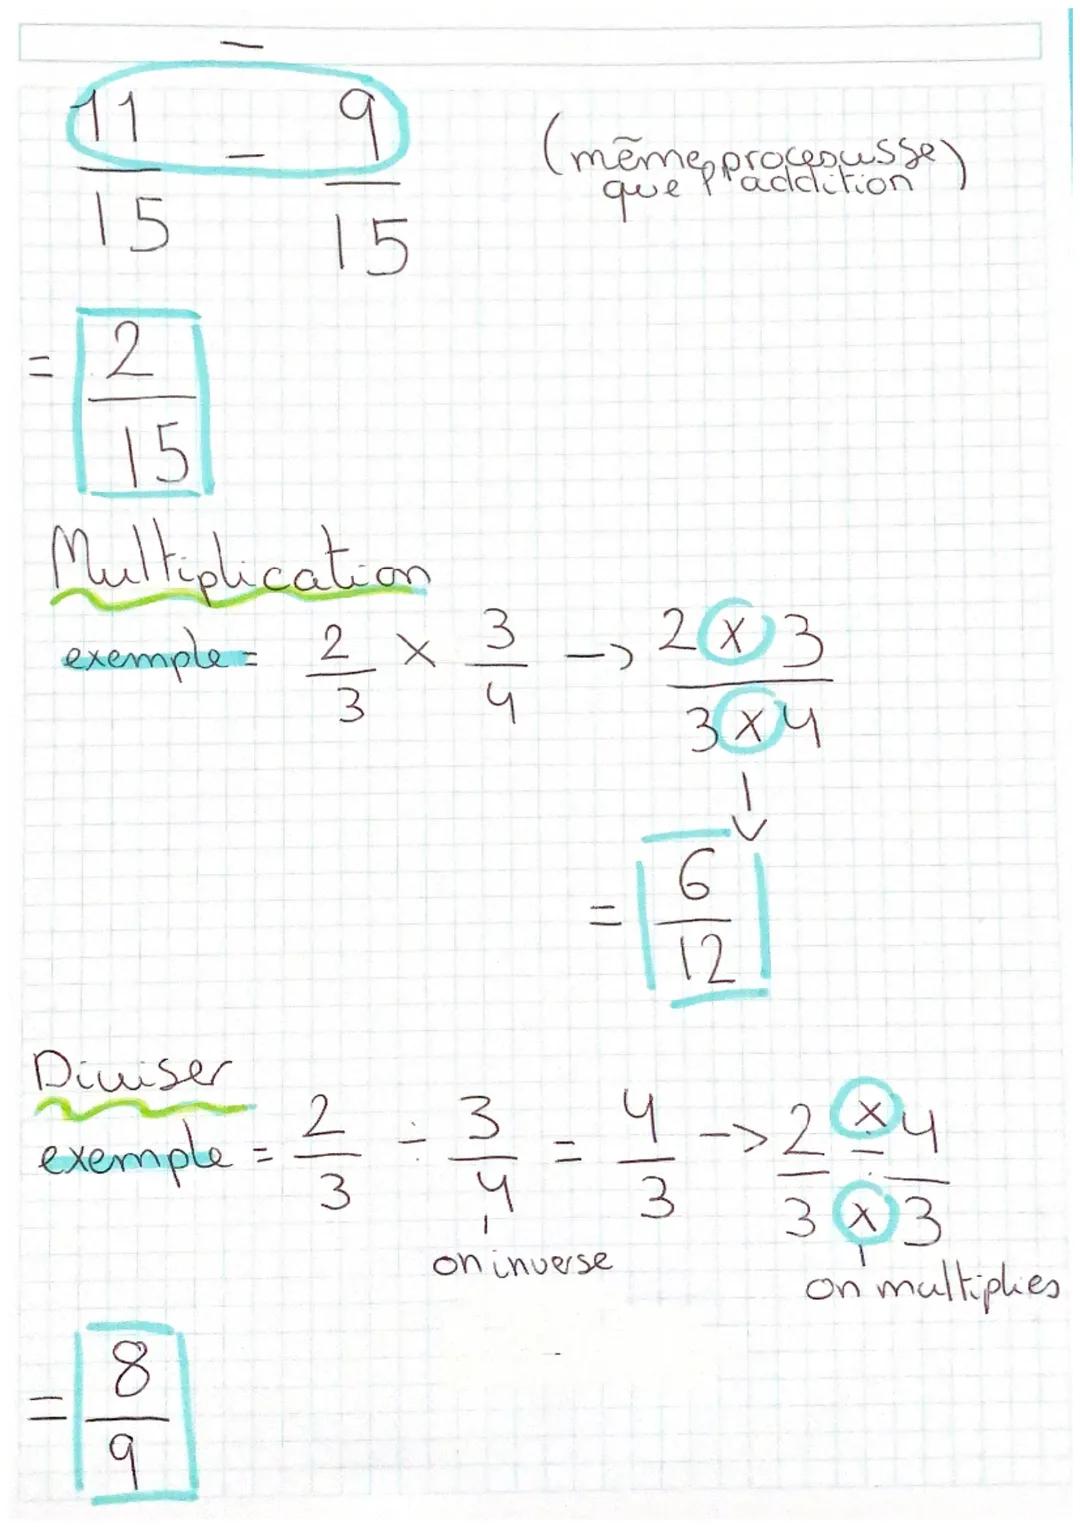 11/15 - 9/15 (même processusse
que l'addition)
= 2/15
Multiplication
exemple = 2/3 x 3/4 -> 2 x 3 / 3 x 4
= 6/12
Diviser
exemple = 2/3 ÷ 3/4 = 4/3 -> 2/3 x 4/3
on inverse
on multiplies
= 8/9